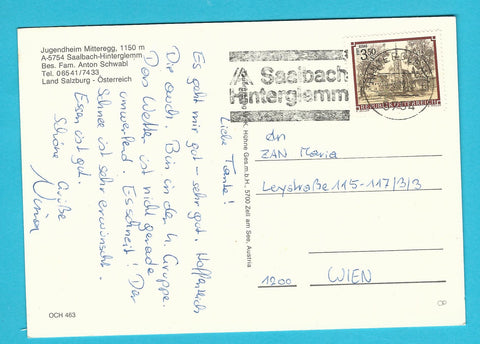 Jugendheim Mitteregg, 1150 m
A-5754 Saalbach-Hinterglemm
Bes. Fam. Anton Schwabl
Tel. 06541/7433
Land Salzburg - Österreich
Liebe Tante!
Es geht mir gut - sehr gut. Hoffentlich
Dir auch. Bin in der 4. Gruppe.
Das Wetter ist nicht gerade
umwerfend. Es schneit! Der
Schnee ist sehr erwünscht.
Essen ist gut.
Schöne Grüße
Saalbach
Hinterglemm
3.50
REPUBLIK ÖSTERREICH
Höhne Ges.m.b.H., 5700 Zell am See, Austria
An
ZAN Maria
Leystraße 115-117/3/3
1200 WIEN
OCH 463